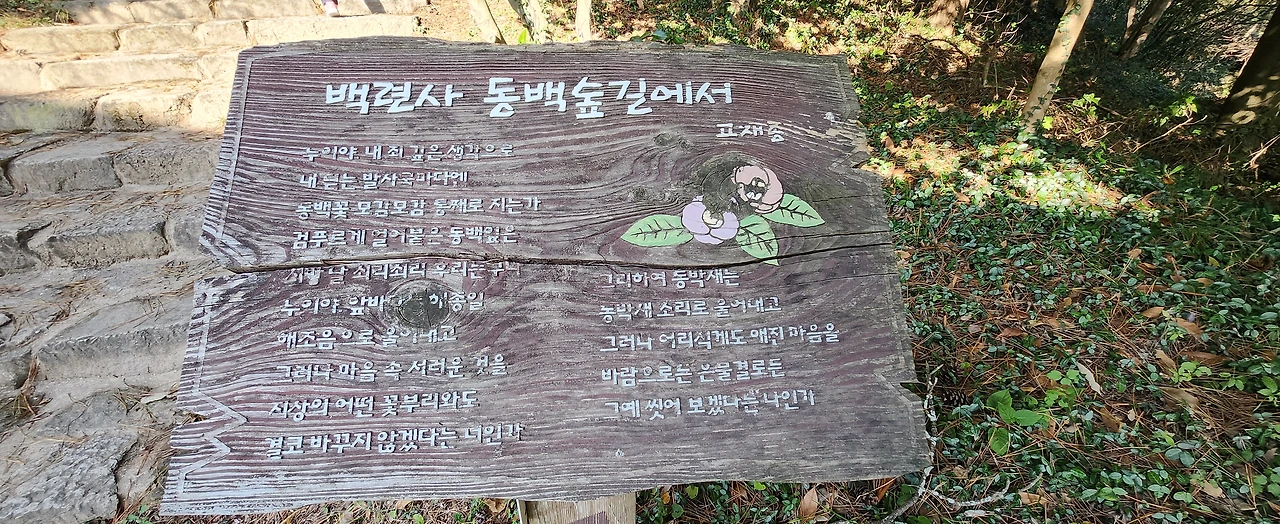 백련사 동백숲길에서
고재종
누이야, 내 죄 깊은 생각으로
내 딛는 발자국마다엔
동백꽃 모감모감 통째로 지는가
검푸르게 얼어붙은 동백잎은
시방 날 쇠리쇠리 후리는구나
누이야, 앞바 해종일
해조음으로 울어내고
그러나 마음 속 서러운 것을
지상의 어떤 꽃부리와도
결코 바꾸지 않겠다는 너인가
그리하여 동박새는
동박새 소리로 울어내고
그러나 어리석게도 애진 마음을
바람으로든 은물결로든
그예 씻어 보겠다는 나인가